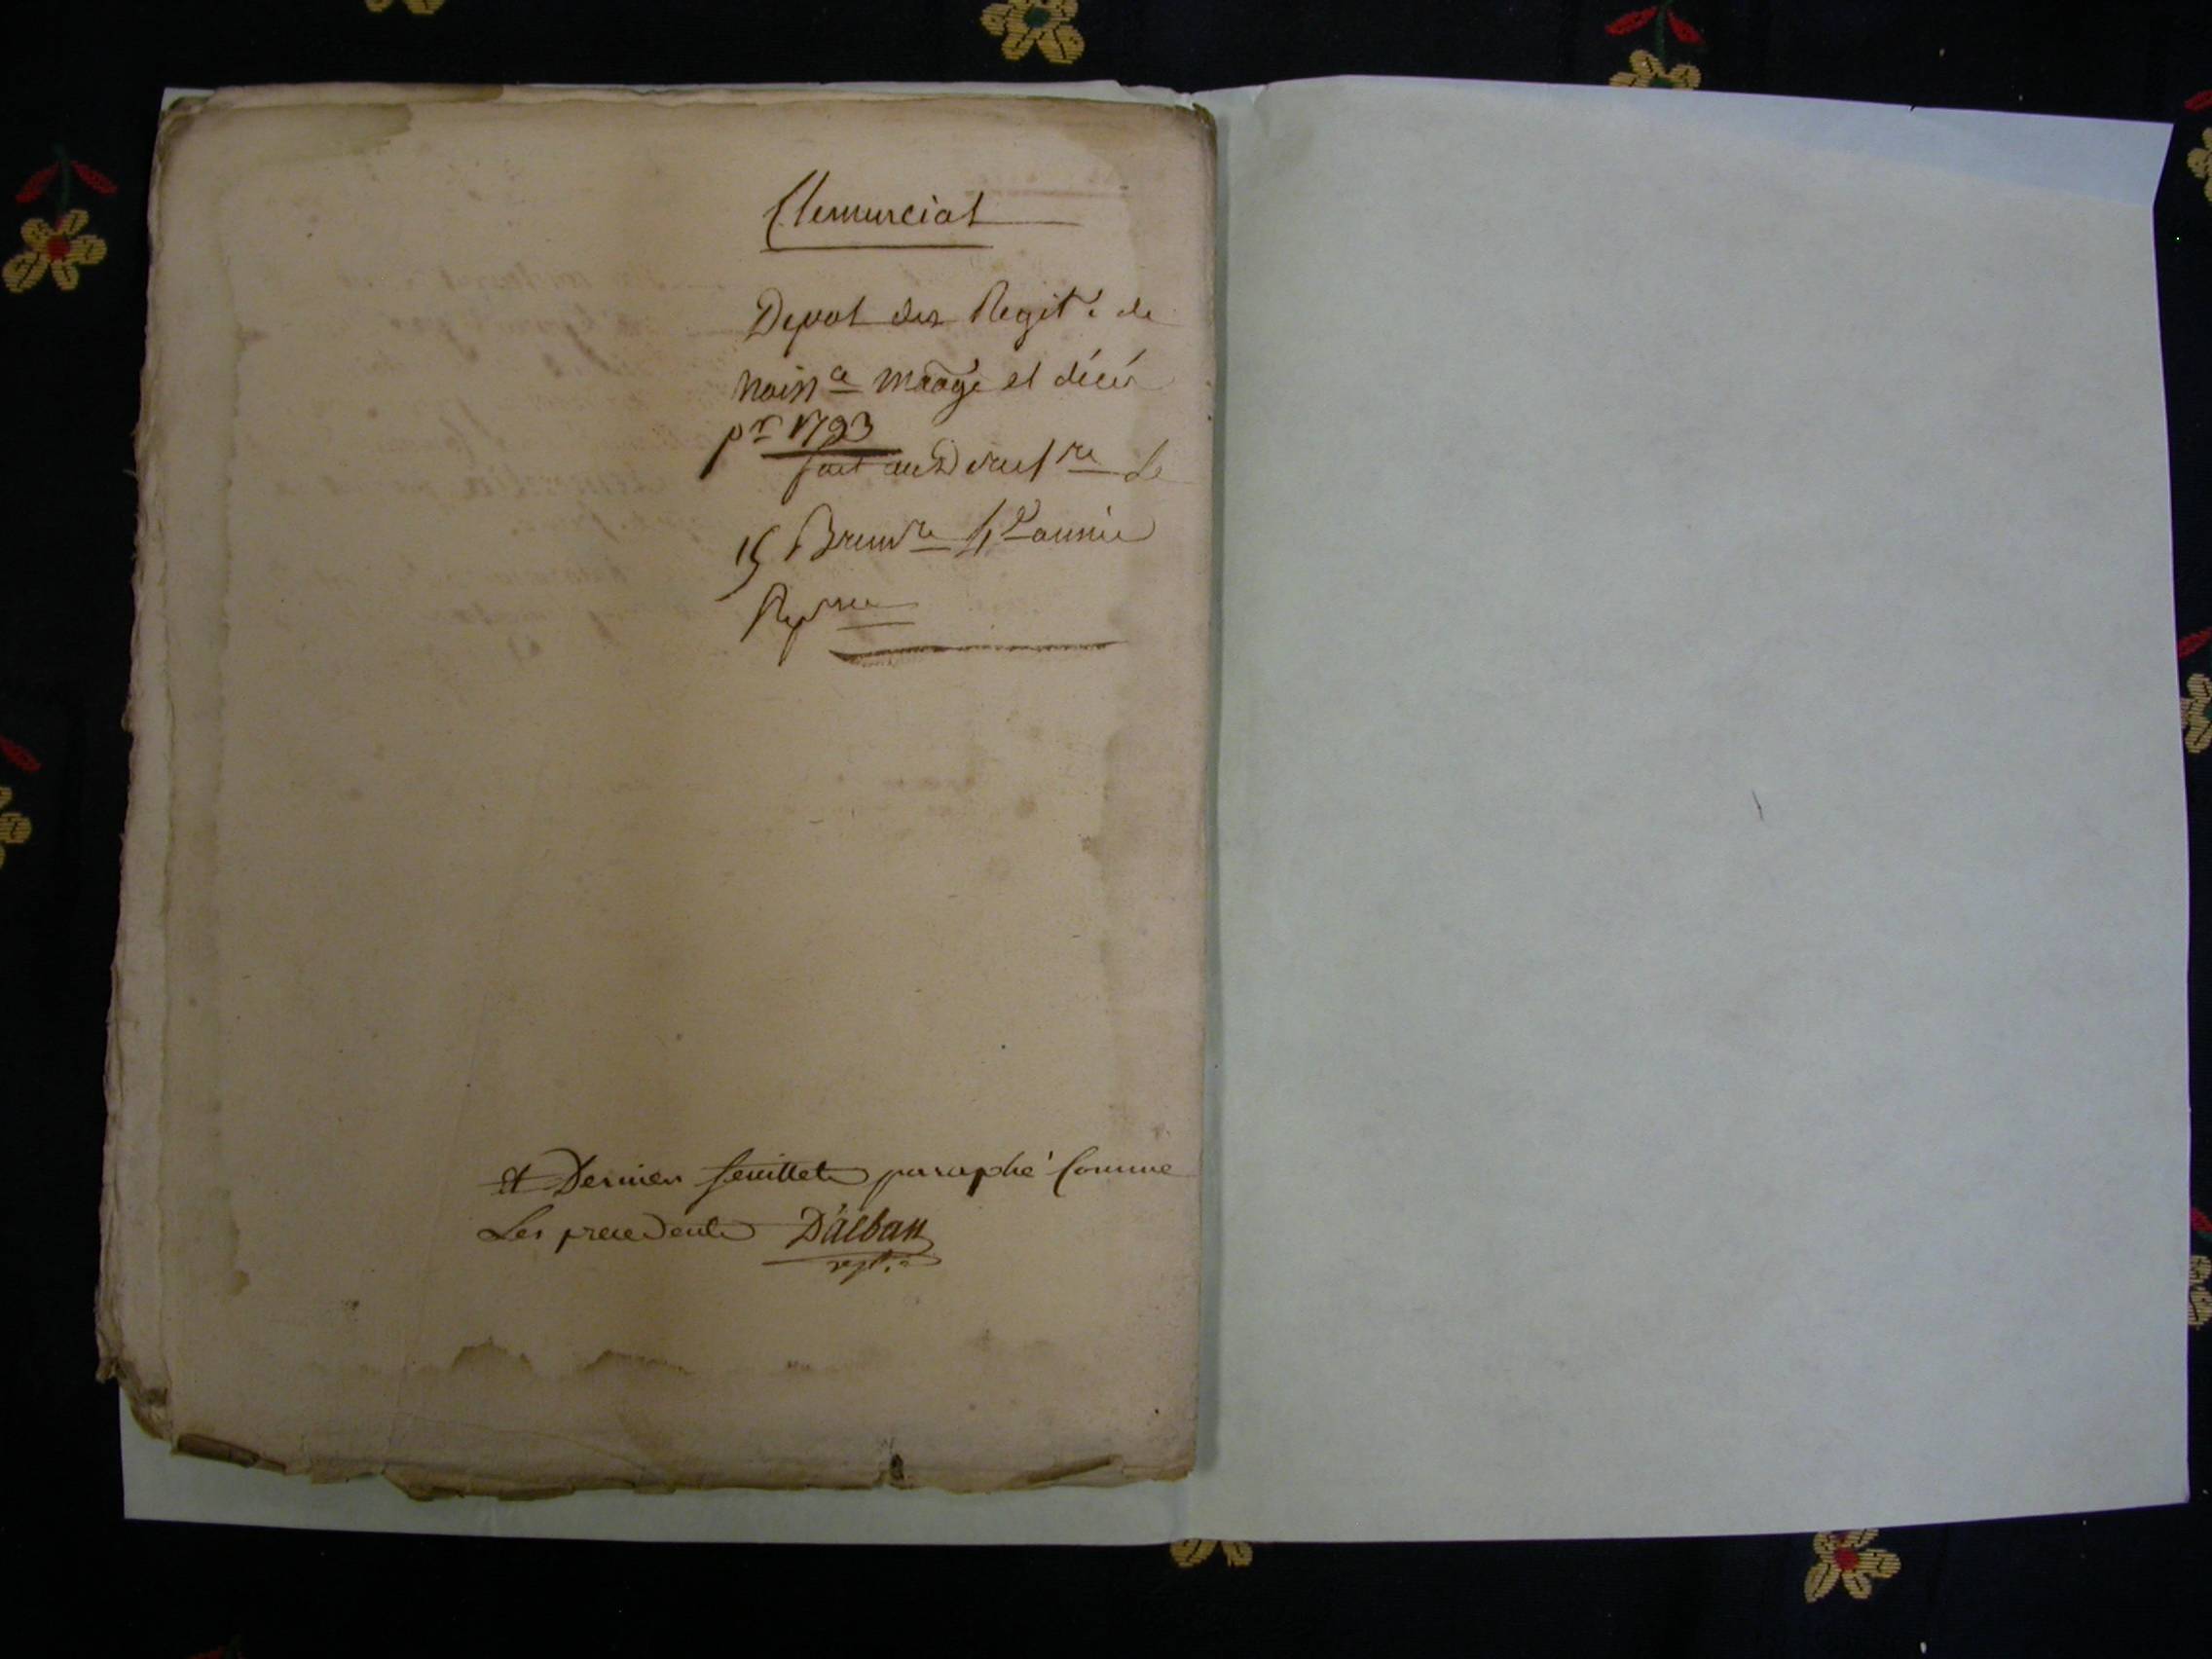 Clemenciat
Depot des Regit.e de
Naissce Mãage et décés
pr 1793
fait au Direct.re le
15 Brumre 4e année
Repne
et Dernier feuillet paraphé Comme
Les precedents D'alban